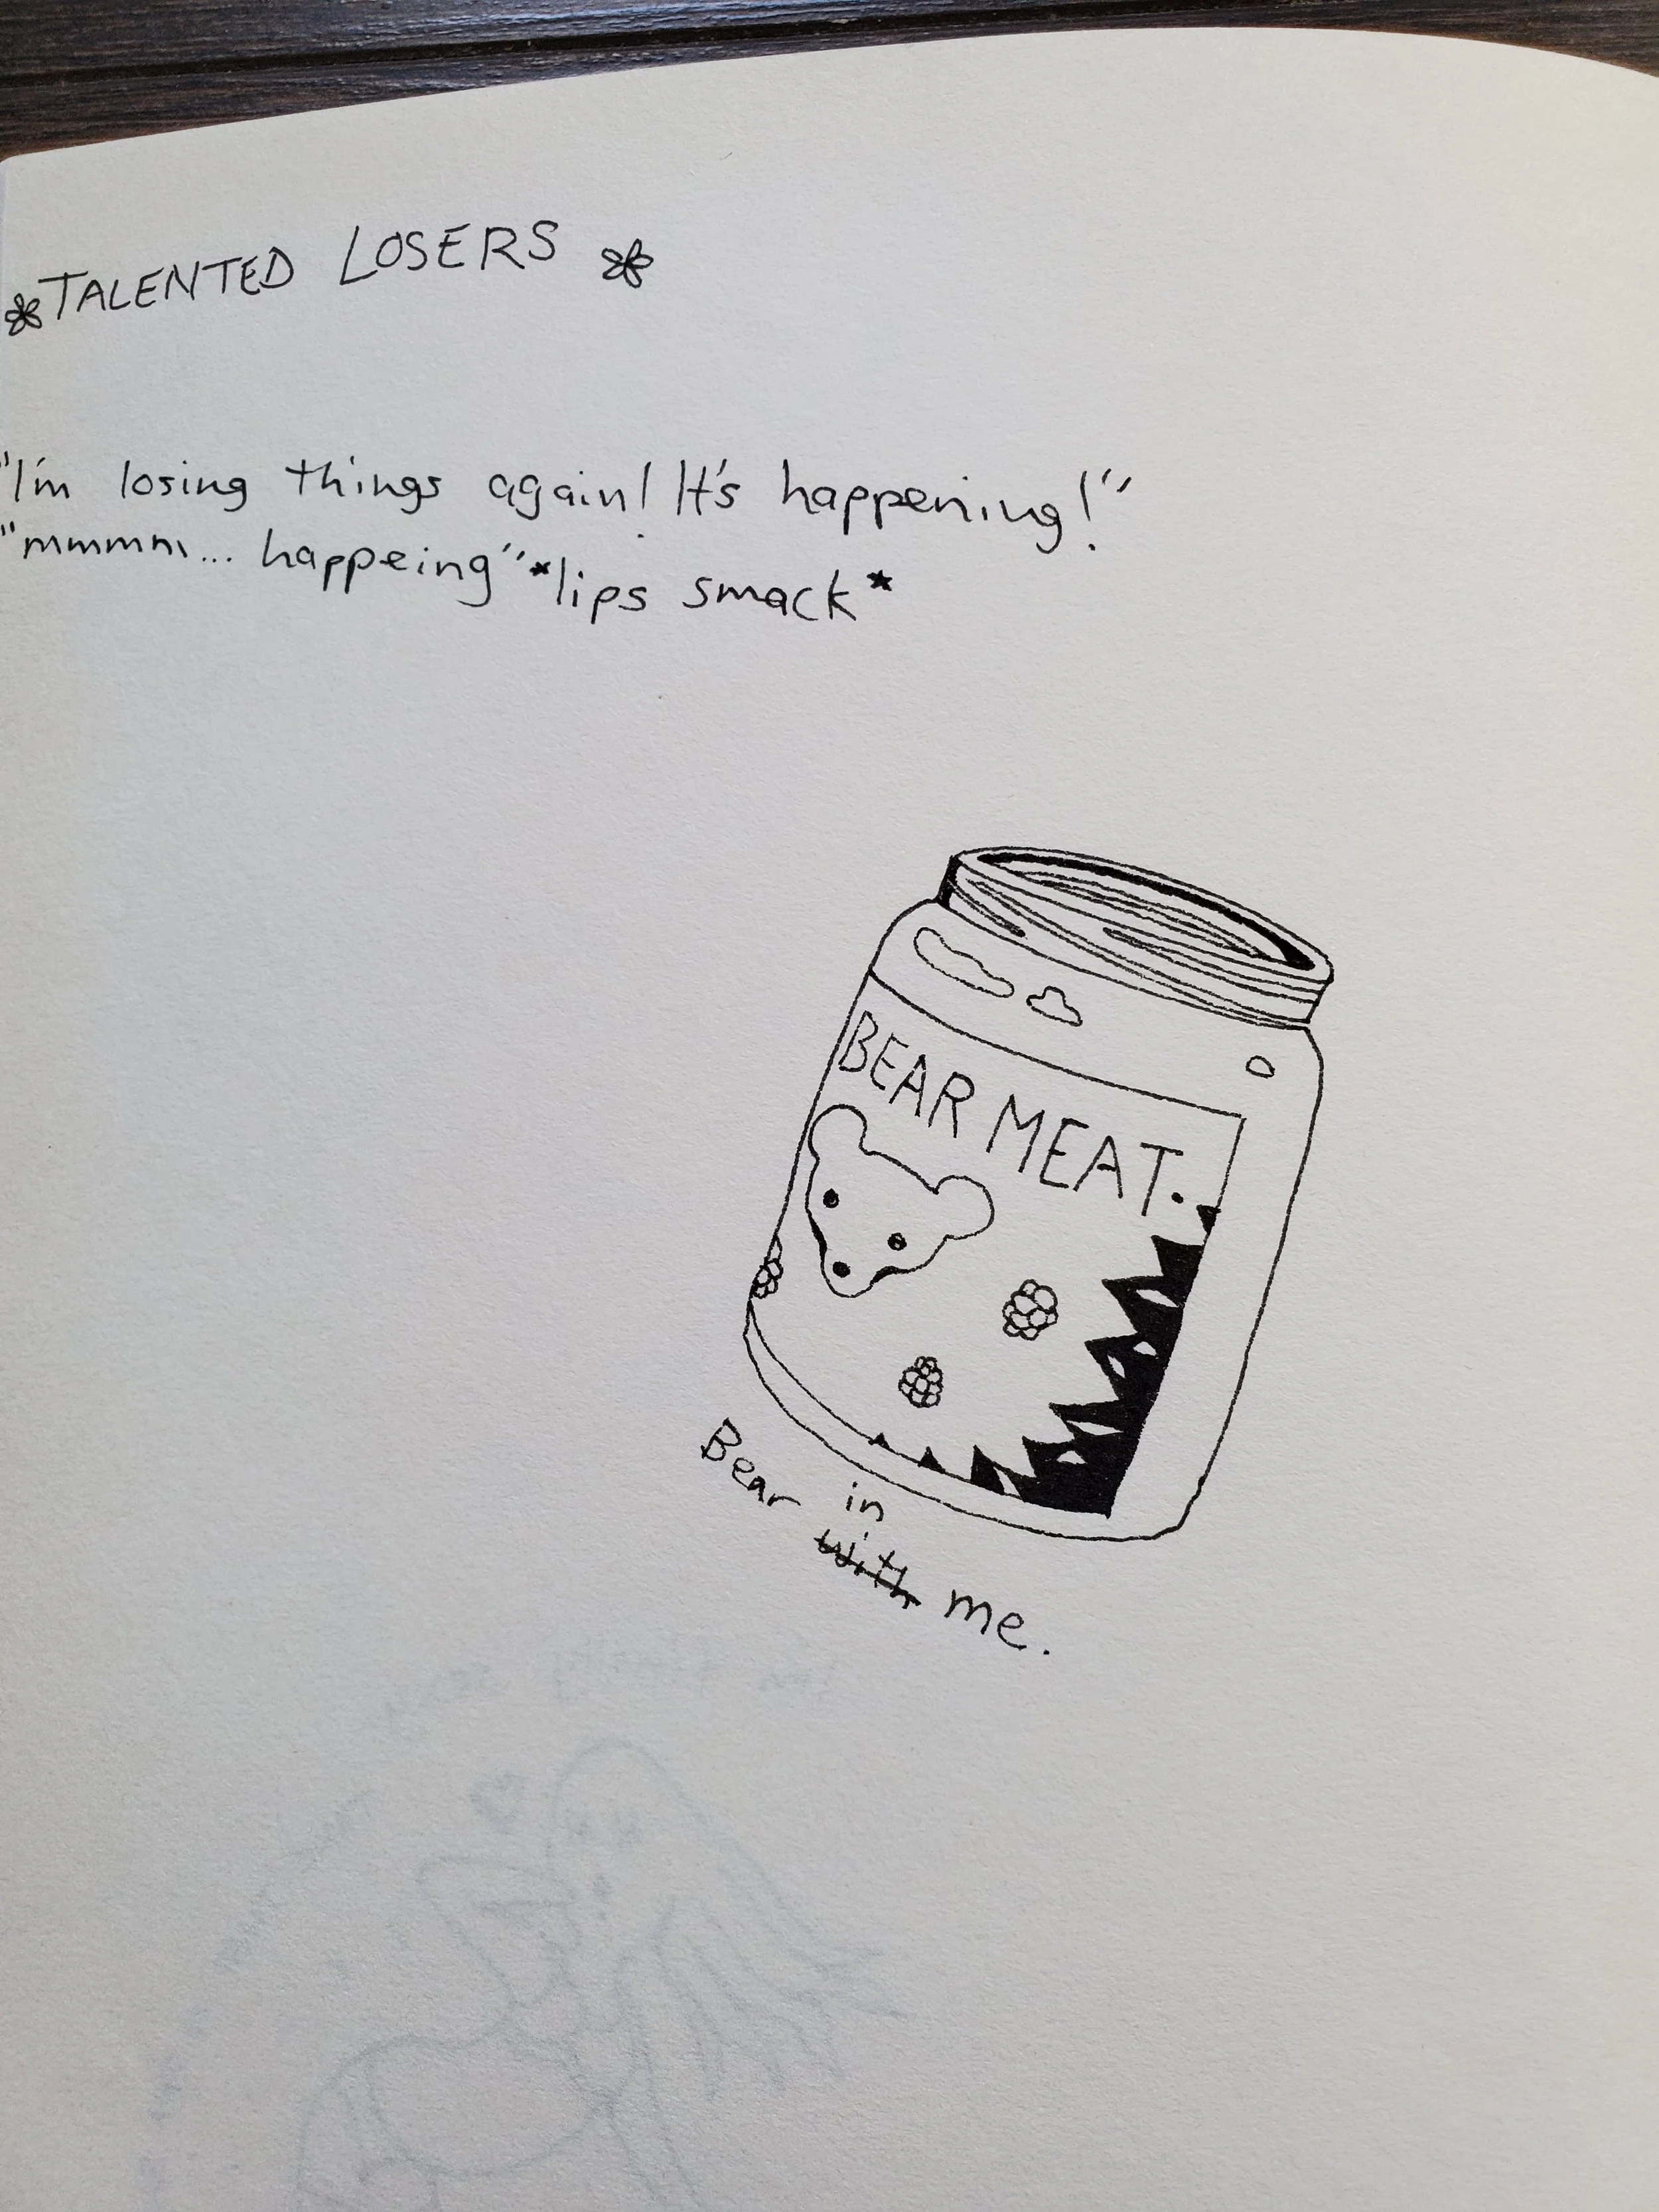 TALENTED LOSERS
"I'm losing things again! It's happening!"
"mmmm... happeing" *lips smack*
BEAR MEAT.
Bear in with me.